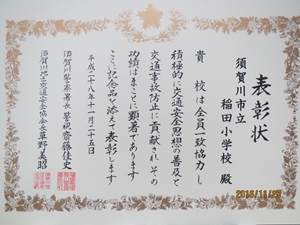 表彰状
須賀川市立
稲田小学校 殿
貴校は全員一致協力し
積極的に交通安全思想の普及と
交通事故防止に貢献されその
功績はまことに顕著であります
ここに記念品を添え表彰します
平成二十八年十一月二十五日
須賀川警察署長 警視 齋藤佳史
須賀川地区交通安全協会長 草野美昭
2016/11/28